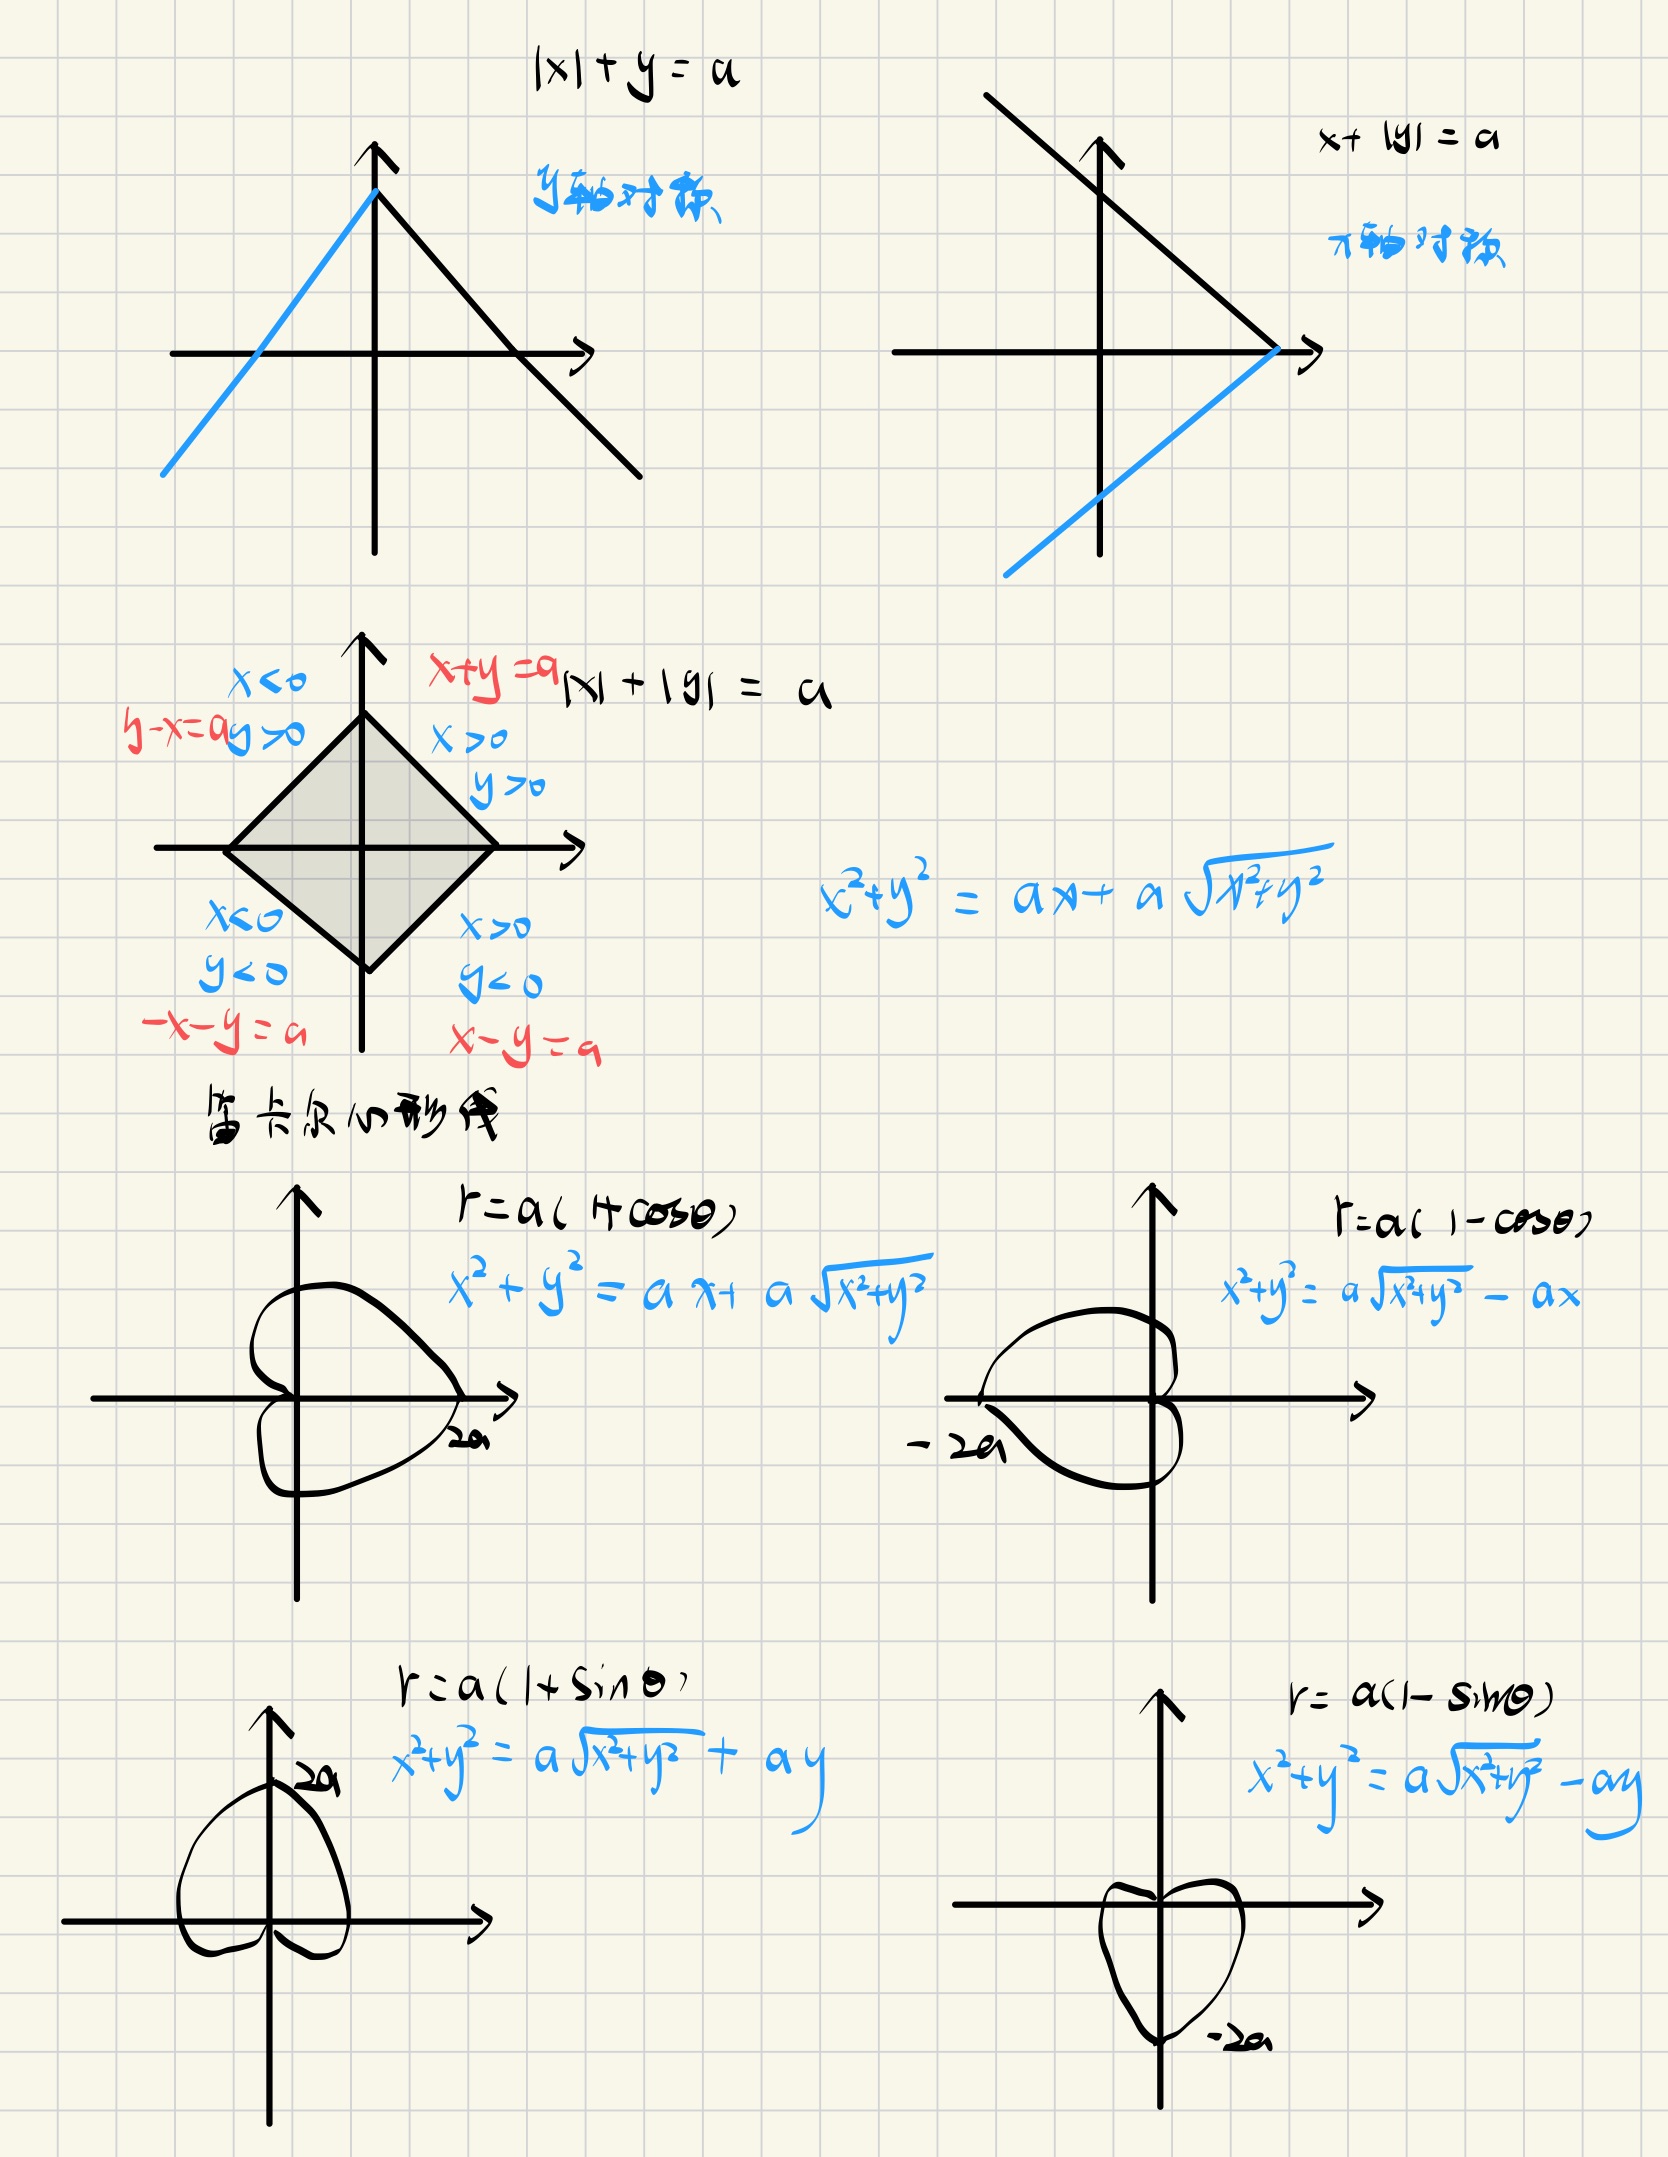 |x|+y=a
y轴对称
x+|y|=a
x轴对称
|x|+|y|=a
x+y=a
x<0
y>0
y-x=a
x>0
y>0
x<0
y<0
-x-y=a
x>0
y<0
x-y=a
x²+y²=ax+a√(x²+y²)
笛卡尔心形线
r=a(1+cosθ)
x²+y²=ax+a√(x²+y²)
2a
r=a(1-cosθ)
x²+y²=a√(x²+y²)-ax
-2a
r=a(1+sinθ)
x²+y²=a√(x²+y²)+ay
2a
r=a(1-sinθ)
x²+y²=a√(x²+y²)-ay
-2a